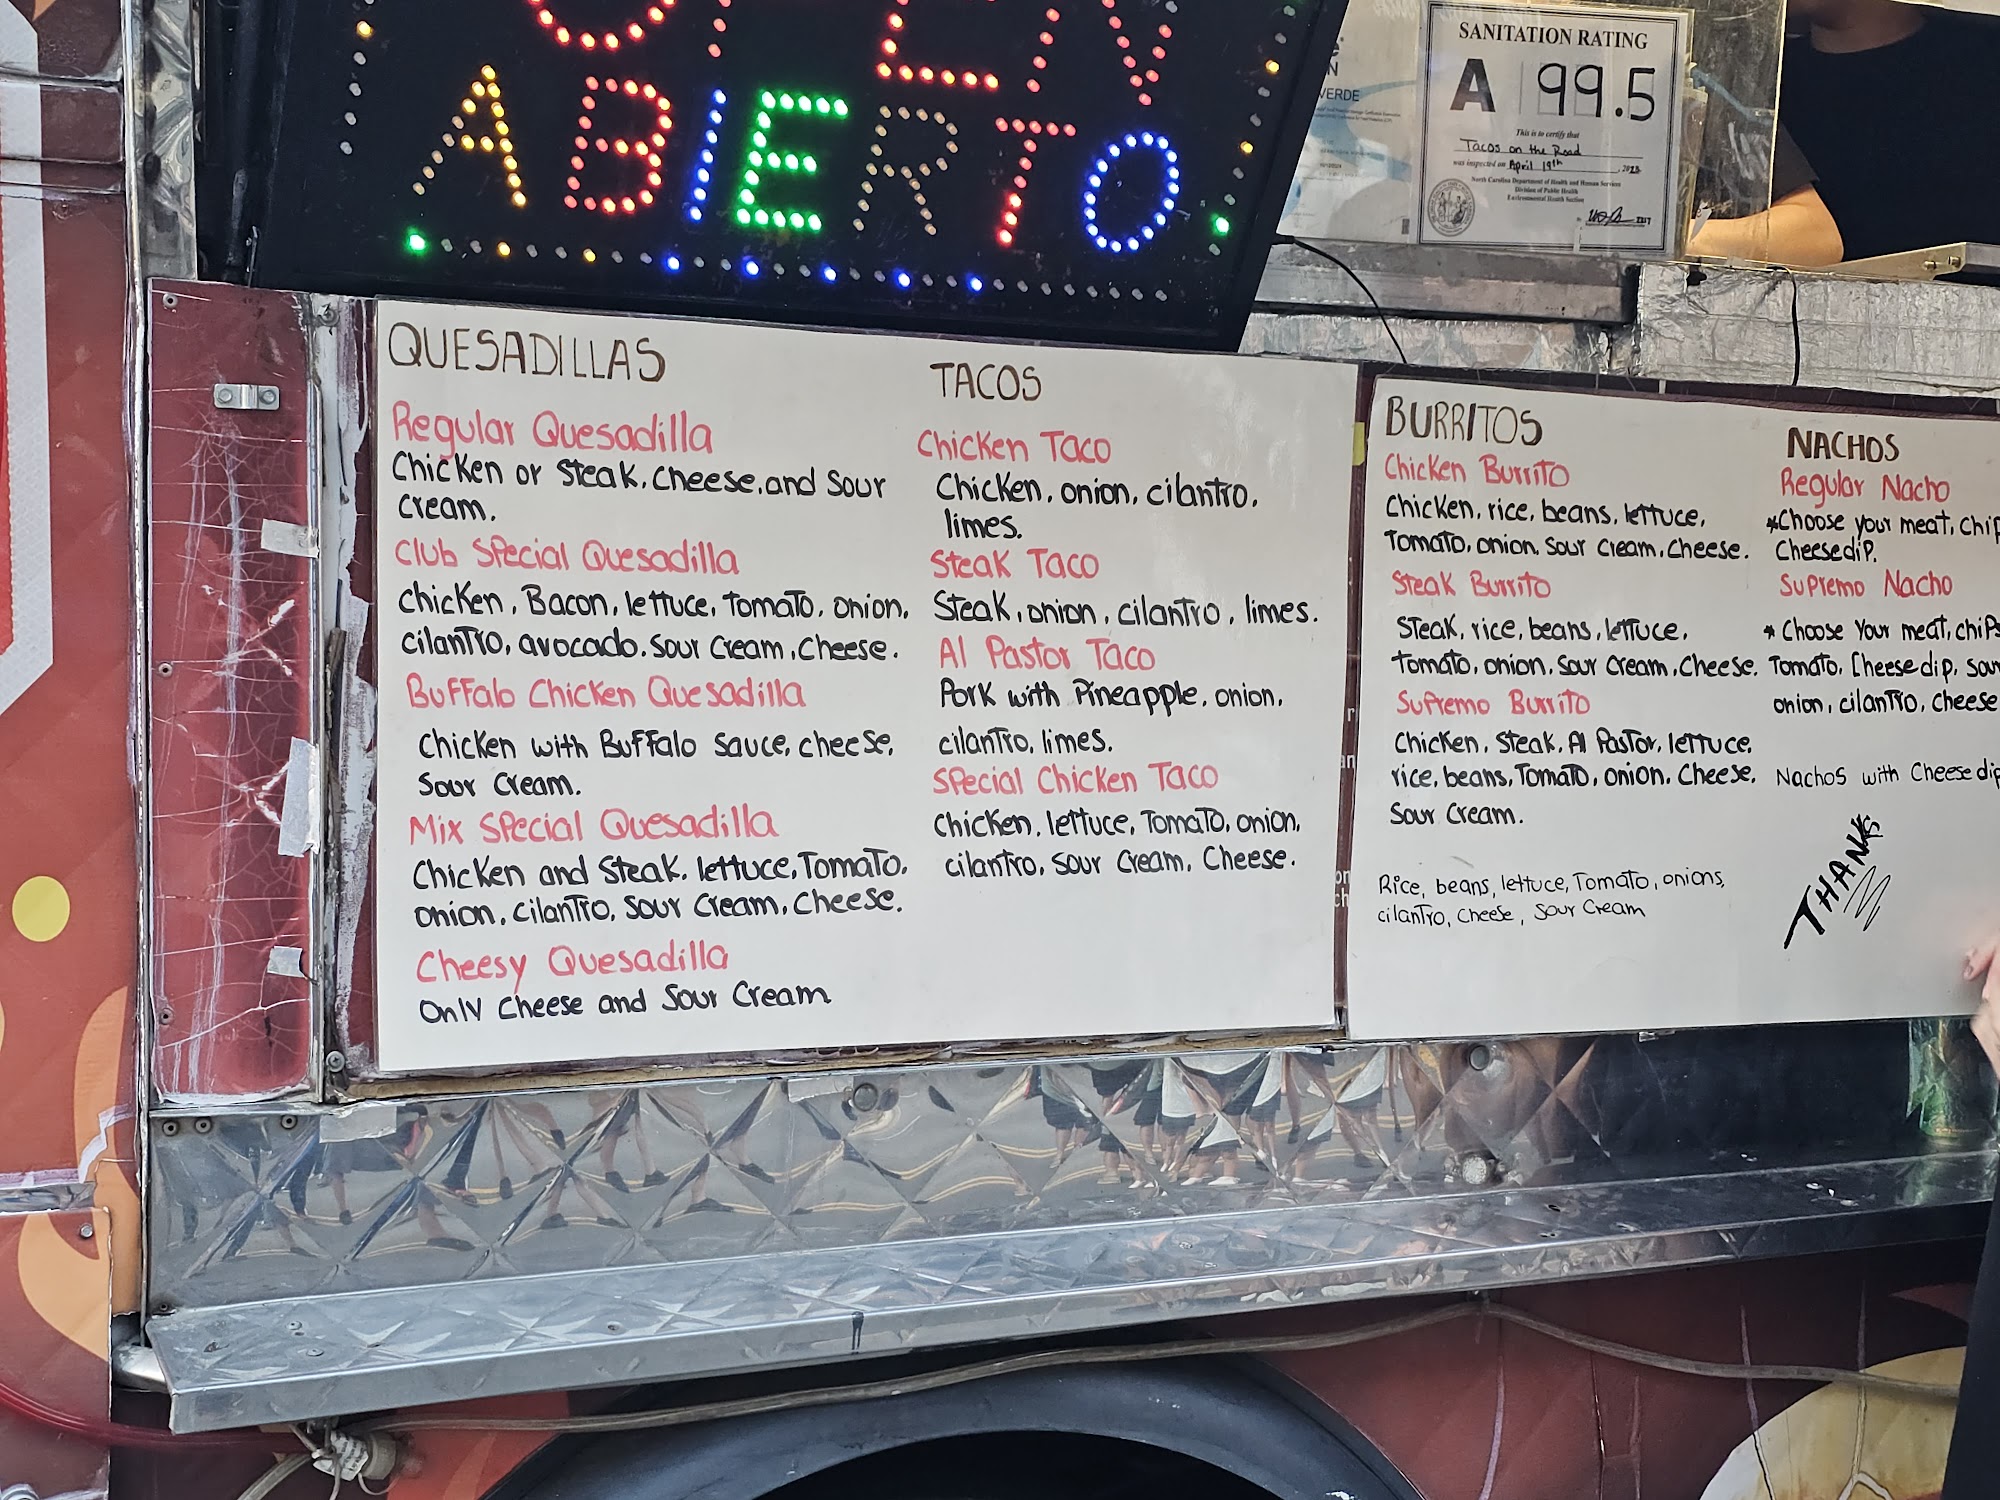 OPEN
ABIERTO
VERDE
SANITATION RATING
A 99.5
This is to certify that
Tacos on the Road
was inspected on April 19th
North Carolina Department of Health and Human Services
Division of Public Health
Environmental Health Section
QUESADILLAS
Regular Quesadilla
Chicken or Steak, Cheese, and Sour
Cream.
Club Special Quesadilla
Chicken, Bacon, lettuce, Tomato, onion,
cilantro, avocado, Sour Cream, Cheese.
Buffalo Chicken Quesadilla
Chicken with Buffalo Sauce, cheese,
Sour Cream.
Mix Special Quesadilla
Chicken and Steak, lettuce, Tomato,
onion, cilantro, Sour Cream, Cheese.
Cheesy Quesadilla
Only Cheese and Sour Cream
TACOS
Chicken Taco
Chicken, onion, cilantro,
limes.
Steak Taco
Steak, onion, cilantro, limes.
Al Pastor Taco
Pork with Pineapple, onion,
cilantro, limes.
Special Chicken Taco
Chicken, lettuce, Tomato, onion,
cilantro, Sour Cream, Cheese.
BURRITOS
Chicken Burrito
Chicken, rice, beans, lettuce,
Tomato, onion, Sour Cream, Cheese.
Steak Burrito
Steak, rice, beans, lettuce,
Tomato, onion, Sour Cream, Cheese.
Supremo Burrito
Chicken, Steak, Al Pastor, lettuce,
rice, beans, Tomato, onion, Cheese,
Sour Cream.
Rice, beans, lettuce, Tomato, onions,
cilantro, Cheese, Sour Cream
NACHOS
Regular Nacho
*Choose your meat, chip
Cheese dip.
Supremo Nacho
* Choose Your meat, chips
Tomato, Cheese dip, sour
onion, cilantro, cheese
Nachos with Cheese dip
THANKS